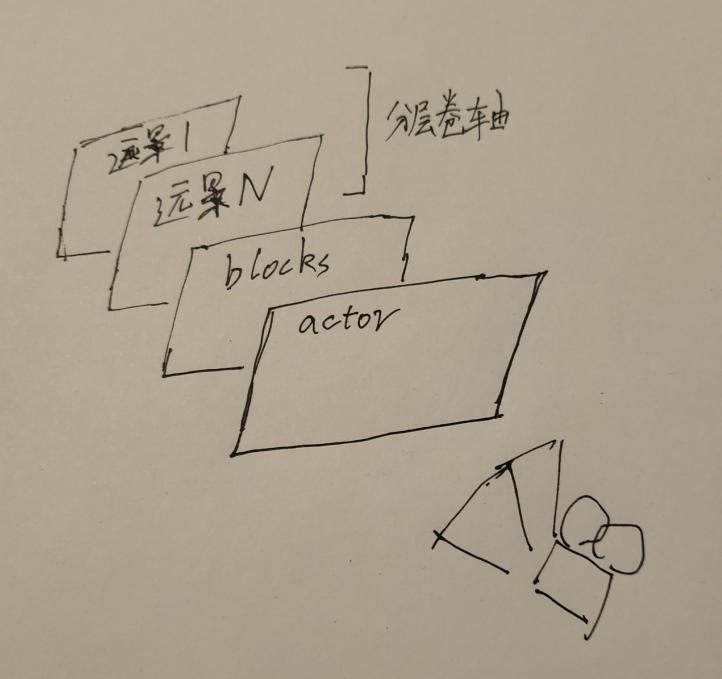 远景1
远景N
分层卷轴
blocks
actor